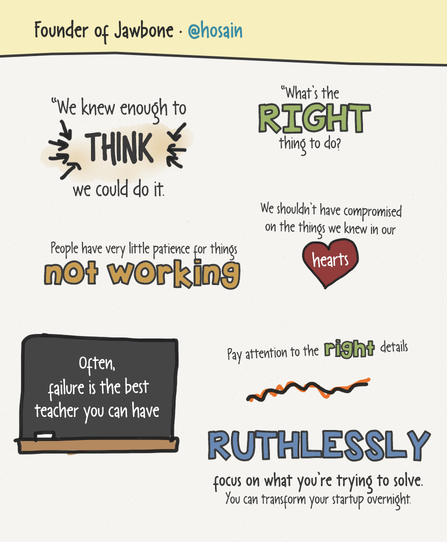 Founder of Jawbone · @hosain
“We knew enough to
THINK
we could do it.
“What's the
RIGHT
thing to do?
We shouldn't have compromised
on the things we knew in our
hearts
People have very little patience for things
not working
Often,
failure is the best
teacher you can have
Pay attention to the right details
RUTHLESSLY
focus on what you're trying to solve.
You can transform your startup overnight.